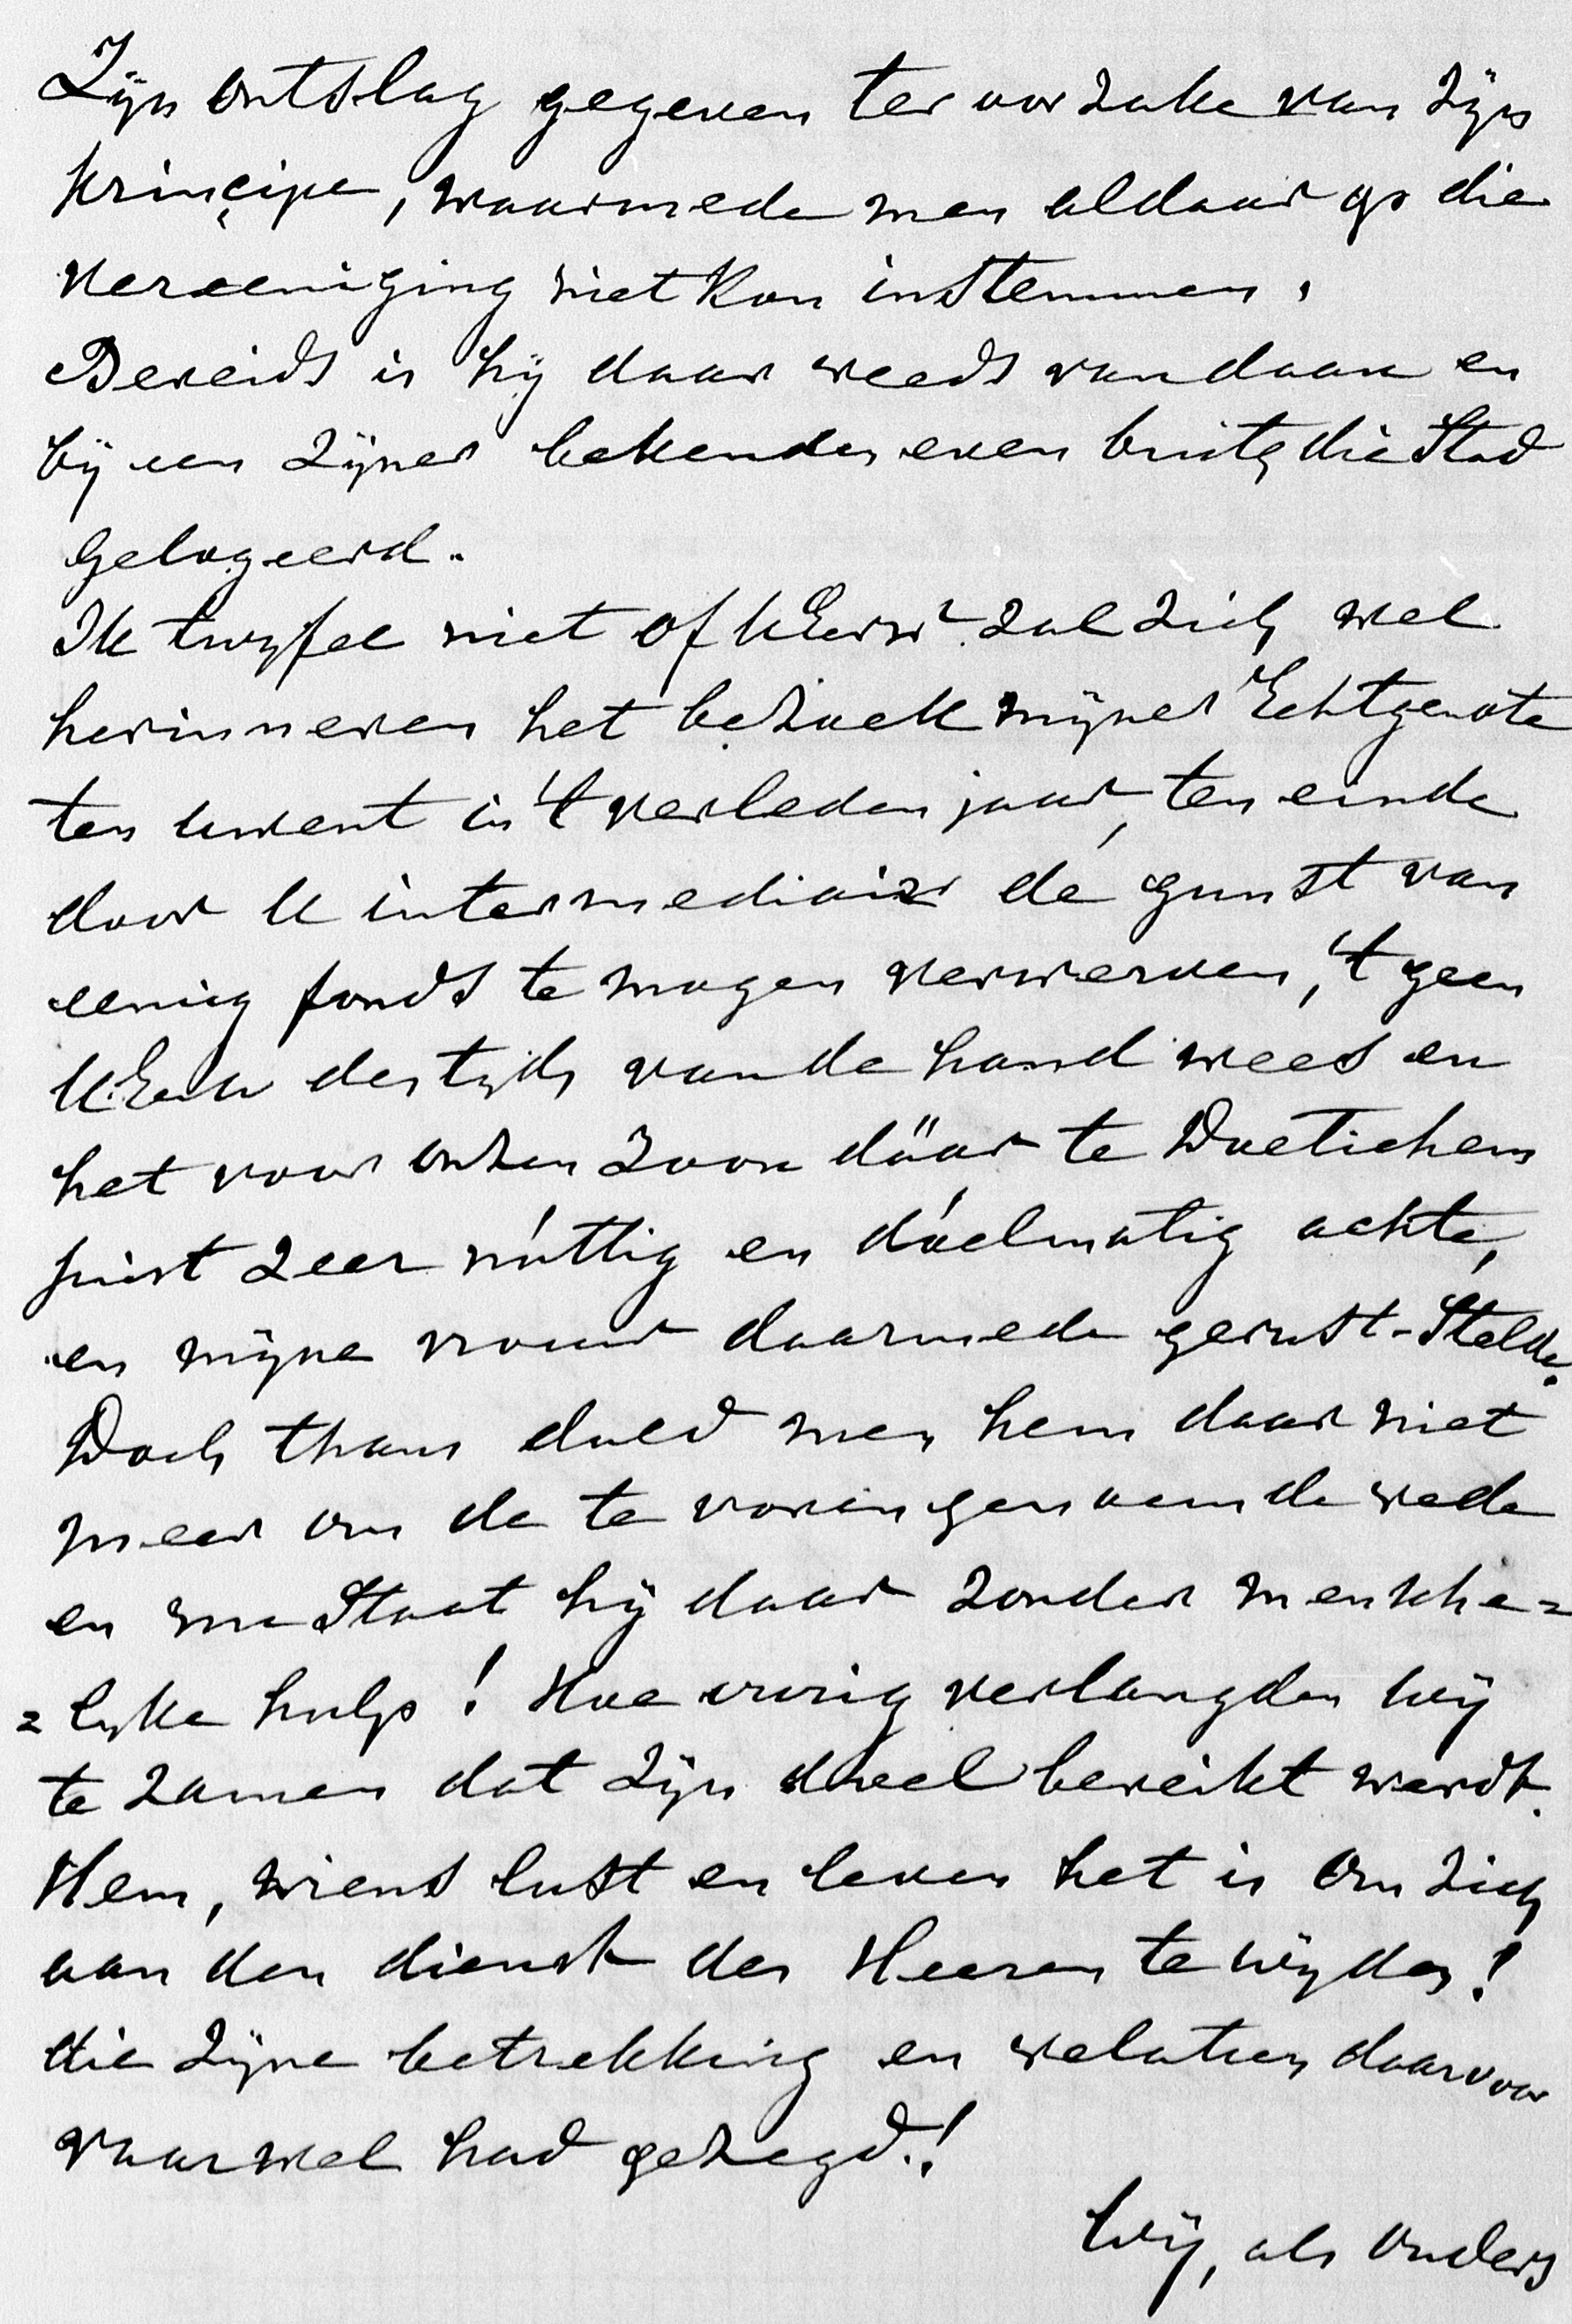 Zijn ontslag gegeven ter oorzake van zijn
principe, waarmede men aldaar op die
vereeniging niet kon instemmen.
Bereids is hij daar reeds vandaan en
bij een zijner bekenden even buiten die Stad
gelogeerd.
Ik twyfel niet of UEerw. zal zich wel
herinneren het bezoek mijner Echtgenote
ten uwent in 't verleden jaar, ten einde
door U intermediair de gunst van
eenig fonds te mogen verwerven, 't geen
UEerw destyds van de hand wees en
het voor onzen Zoon däar te Doetichem
juist zeer nuttig en doelmatig achtte,
en mijne vrouw daarmede gerust-Stelde.
Doch thans duld men hem daar niet
meer om de te voren genoemde rede
en nu Staat hij daar zonder menscha=
=lyke hulp! Hoe vurig verlangden wij
te zamen dat zijn doel bereikt werdt.
Hem, wiens lust en leven het is om zich
aan den dienst des Heeren te wijden!
die zijne betrekking en relatien daarvoor
vaarwel had gezegd.!
Wij, als Ouders